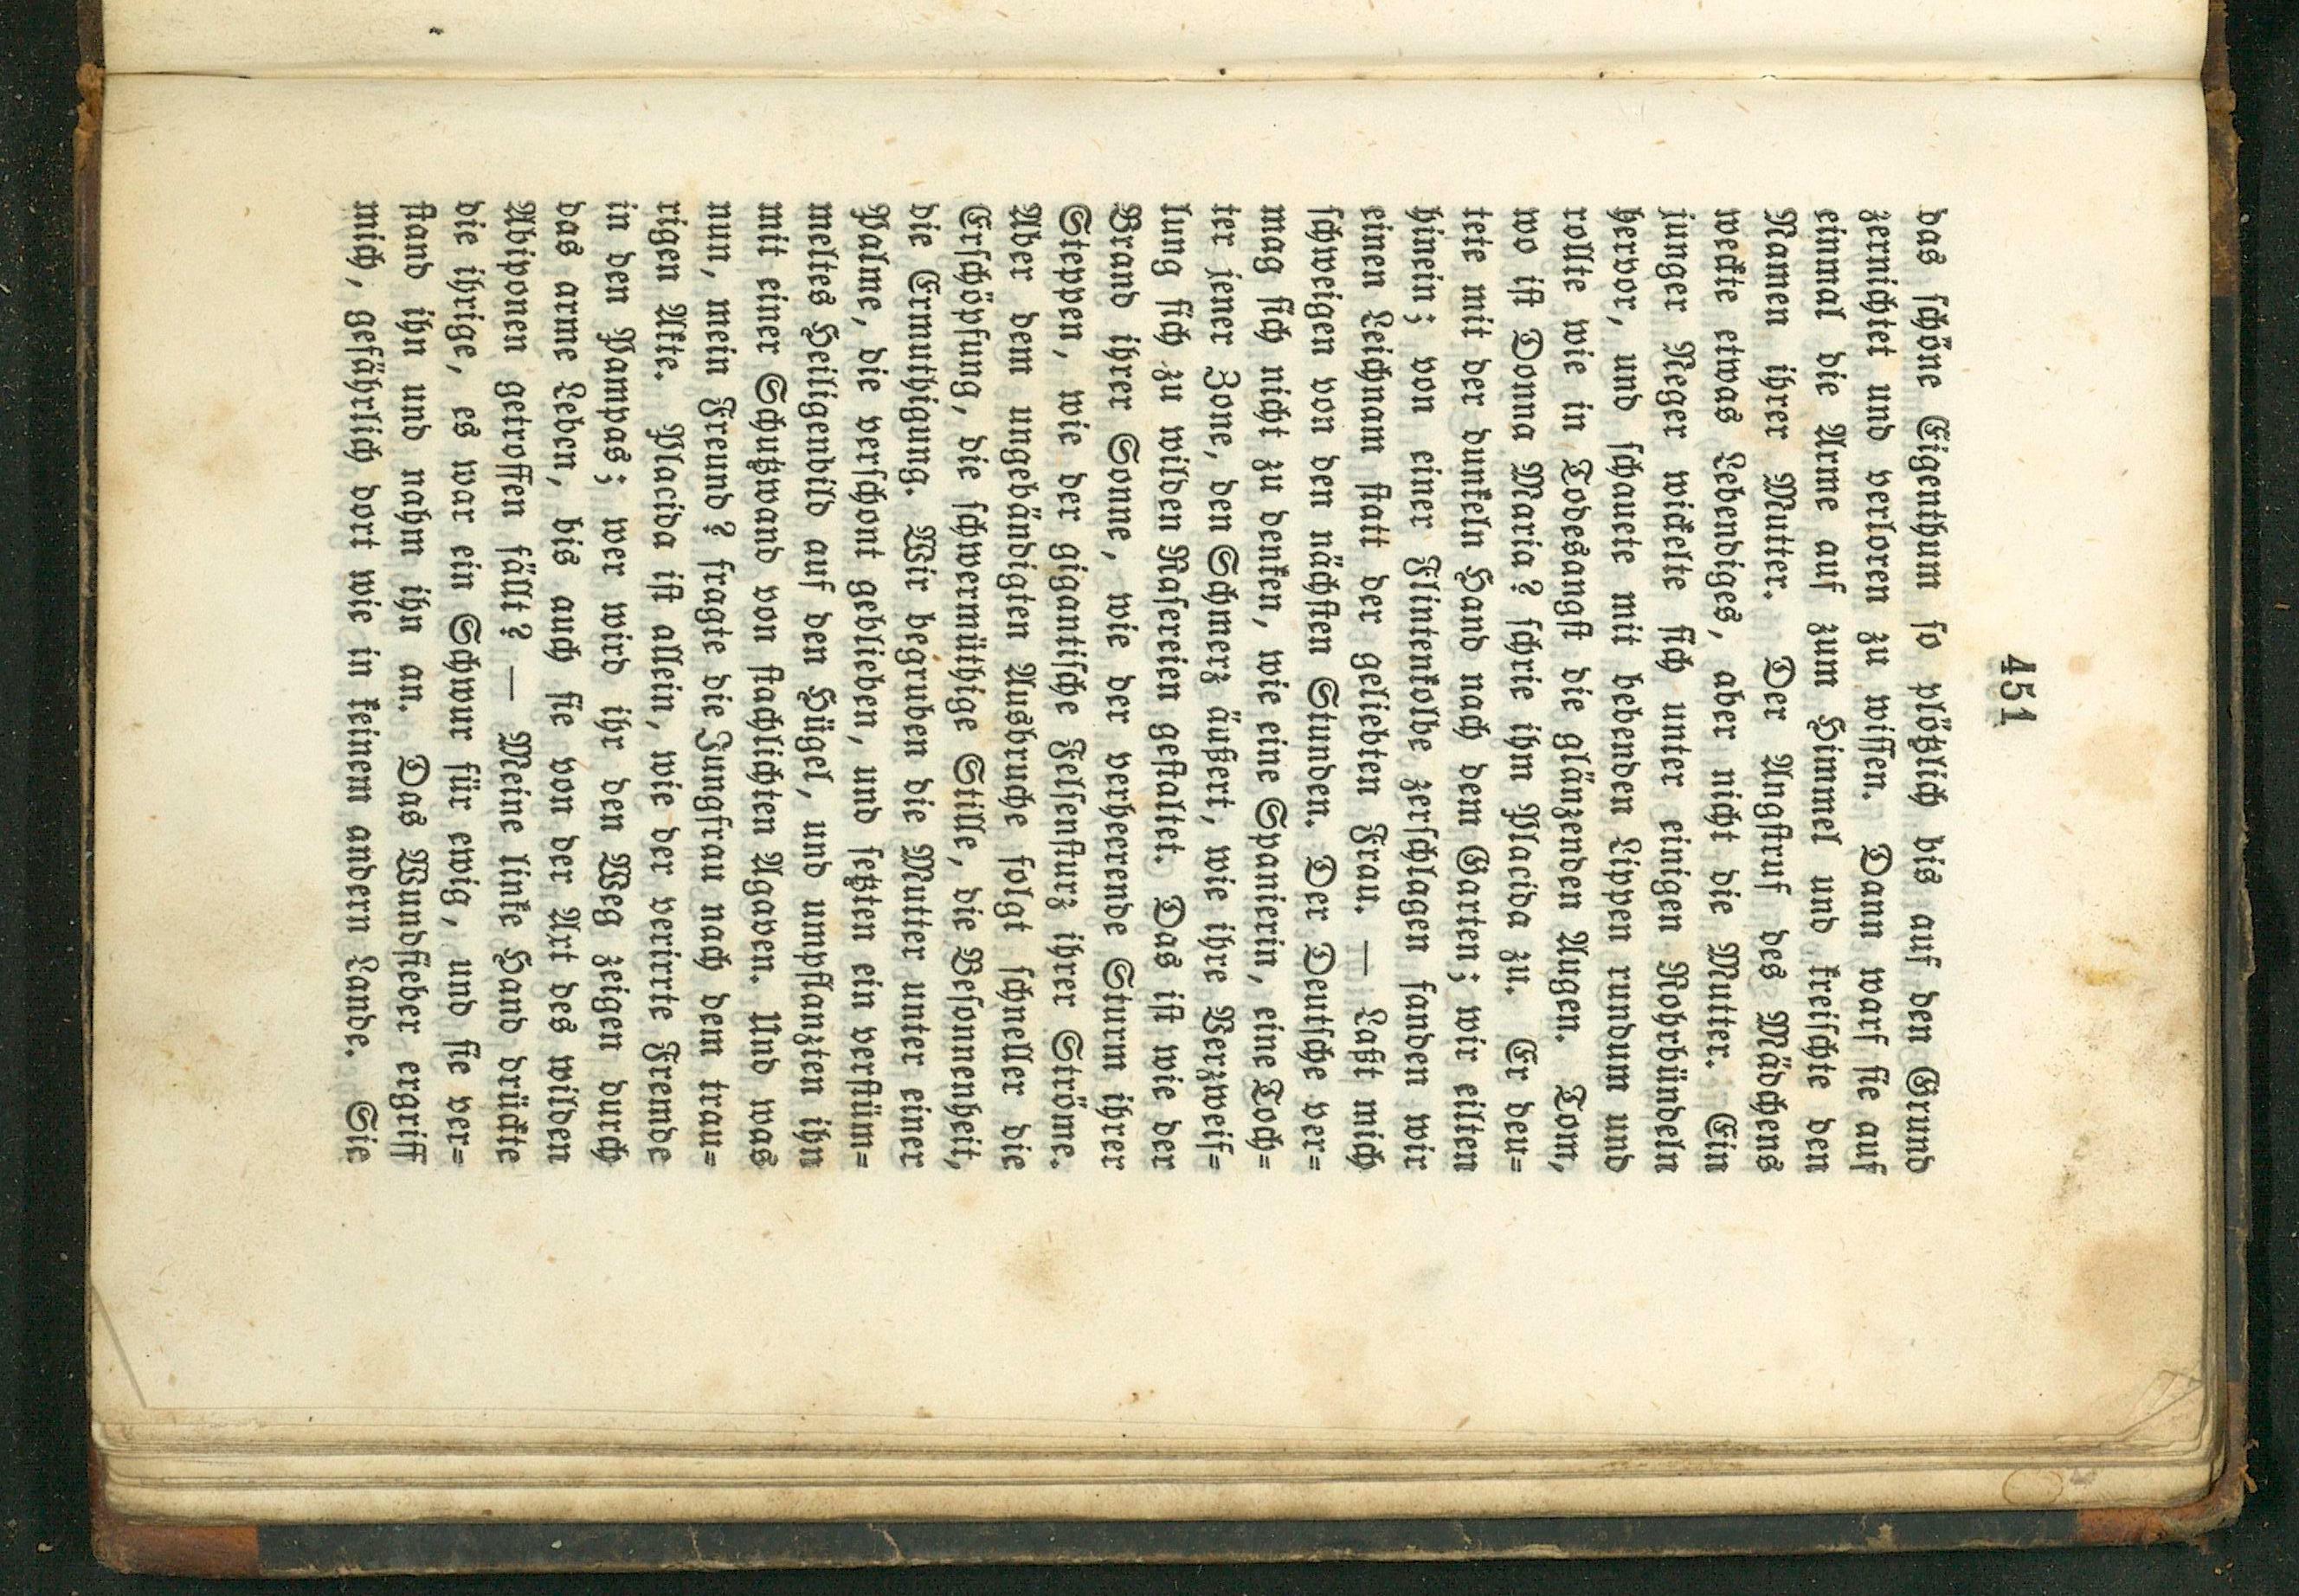 451
das ſchöne Eigenthum ſo plötzlich bis auf den Grund
zernichtet und verloren zu wiſſen. Dann warf ſie auf
einmal die Arme auf zum Himmel und kreiſchte den
Namen ihrer Mutter. Der Angſtruf des Mädchens
weckte etwas Lebendiges, aber nicht die Mutter. Ein
junger Neger wickelte ſich unter einigen Rohrbündeln
hervor, und ſchauete mit bebenden Lippen rundum und
rollte wie in Todesangſt die glänzenden Augen. Tom,
wo iſt Donna Maria? ſchrie ihm Placida zu. Er deu=
tete mit der dunkeln Hand nach dem Garten; wir eilten
hinein; von einer Flintenkolbe zerſchlagen fanden wir
einen Leichnam ſtatt der geliebten Frau. — Laßt mich
ſchweigen von den nächſten Stunden. Der Deutſche ver=
mag ſich nicht zu denken, wie eine Spanierin, eine Toch=
ter jener Zone, den Schmerz äußert, wie ihre Verzweif=
lung ſich zu wilden Raſereien geſtaltet. Das iſt wie der
Brand ihrer Sonne, wie der verheerende Sturm ihrer
Steppen, wie der gigantiſche Felſenſturz ihrer Ströme.
Aber dem ungebändigten Ausbruche folgt ſchneller die
Erſchöpfung, die ſchwermüthige Stille, die Beſonnenheit,
die Ermuthigung. Wir begruben die Mutter unter einer
Palme, die verſchont geblieben, und ſetzten ein verſtüm=
meltes Heiligenbild auf den Hügel, und umpflanzten ihn
mit einer Schutzwand von ſtachlichten Agaven. Und was
nun, mein Freund? fragte die Jungfrau nach dem trau=
rigen Akte. Placida iſt allein, wie der verirrte Fremde
in den Pampas; wer wird ihr den Weg zeigen durch
das arme Leben, bis auch ſie von der Axt des wilden
Abiponen getroffen fällt? — Meine linke Hand drückte
die ihrige, es war ein Schwur für ewig, und ſie ver=
ſtand ihn und nahm ihn an. Das Wundfieber ergriff
mich, gefährlich dort wie in keinem andern Lande. Sie